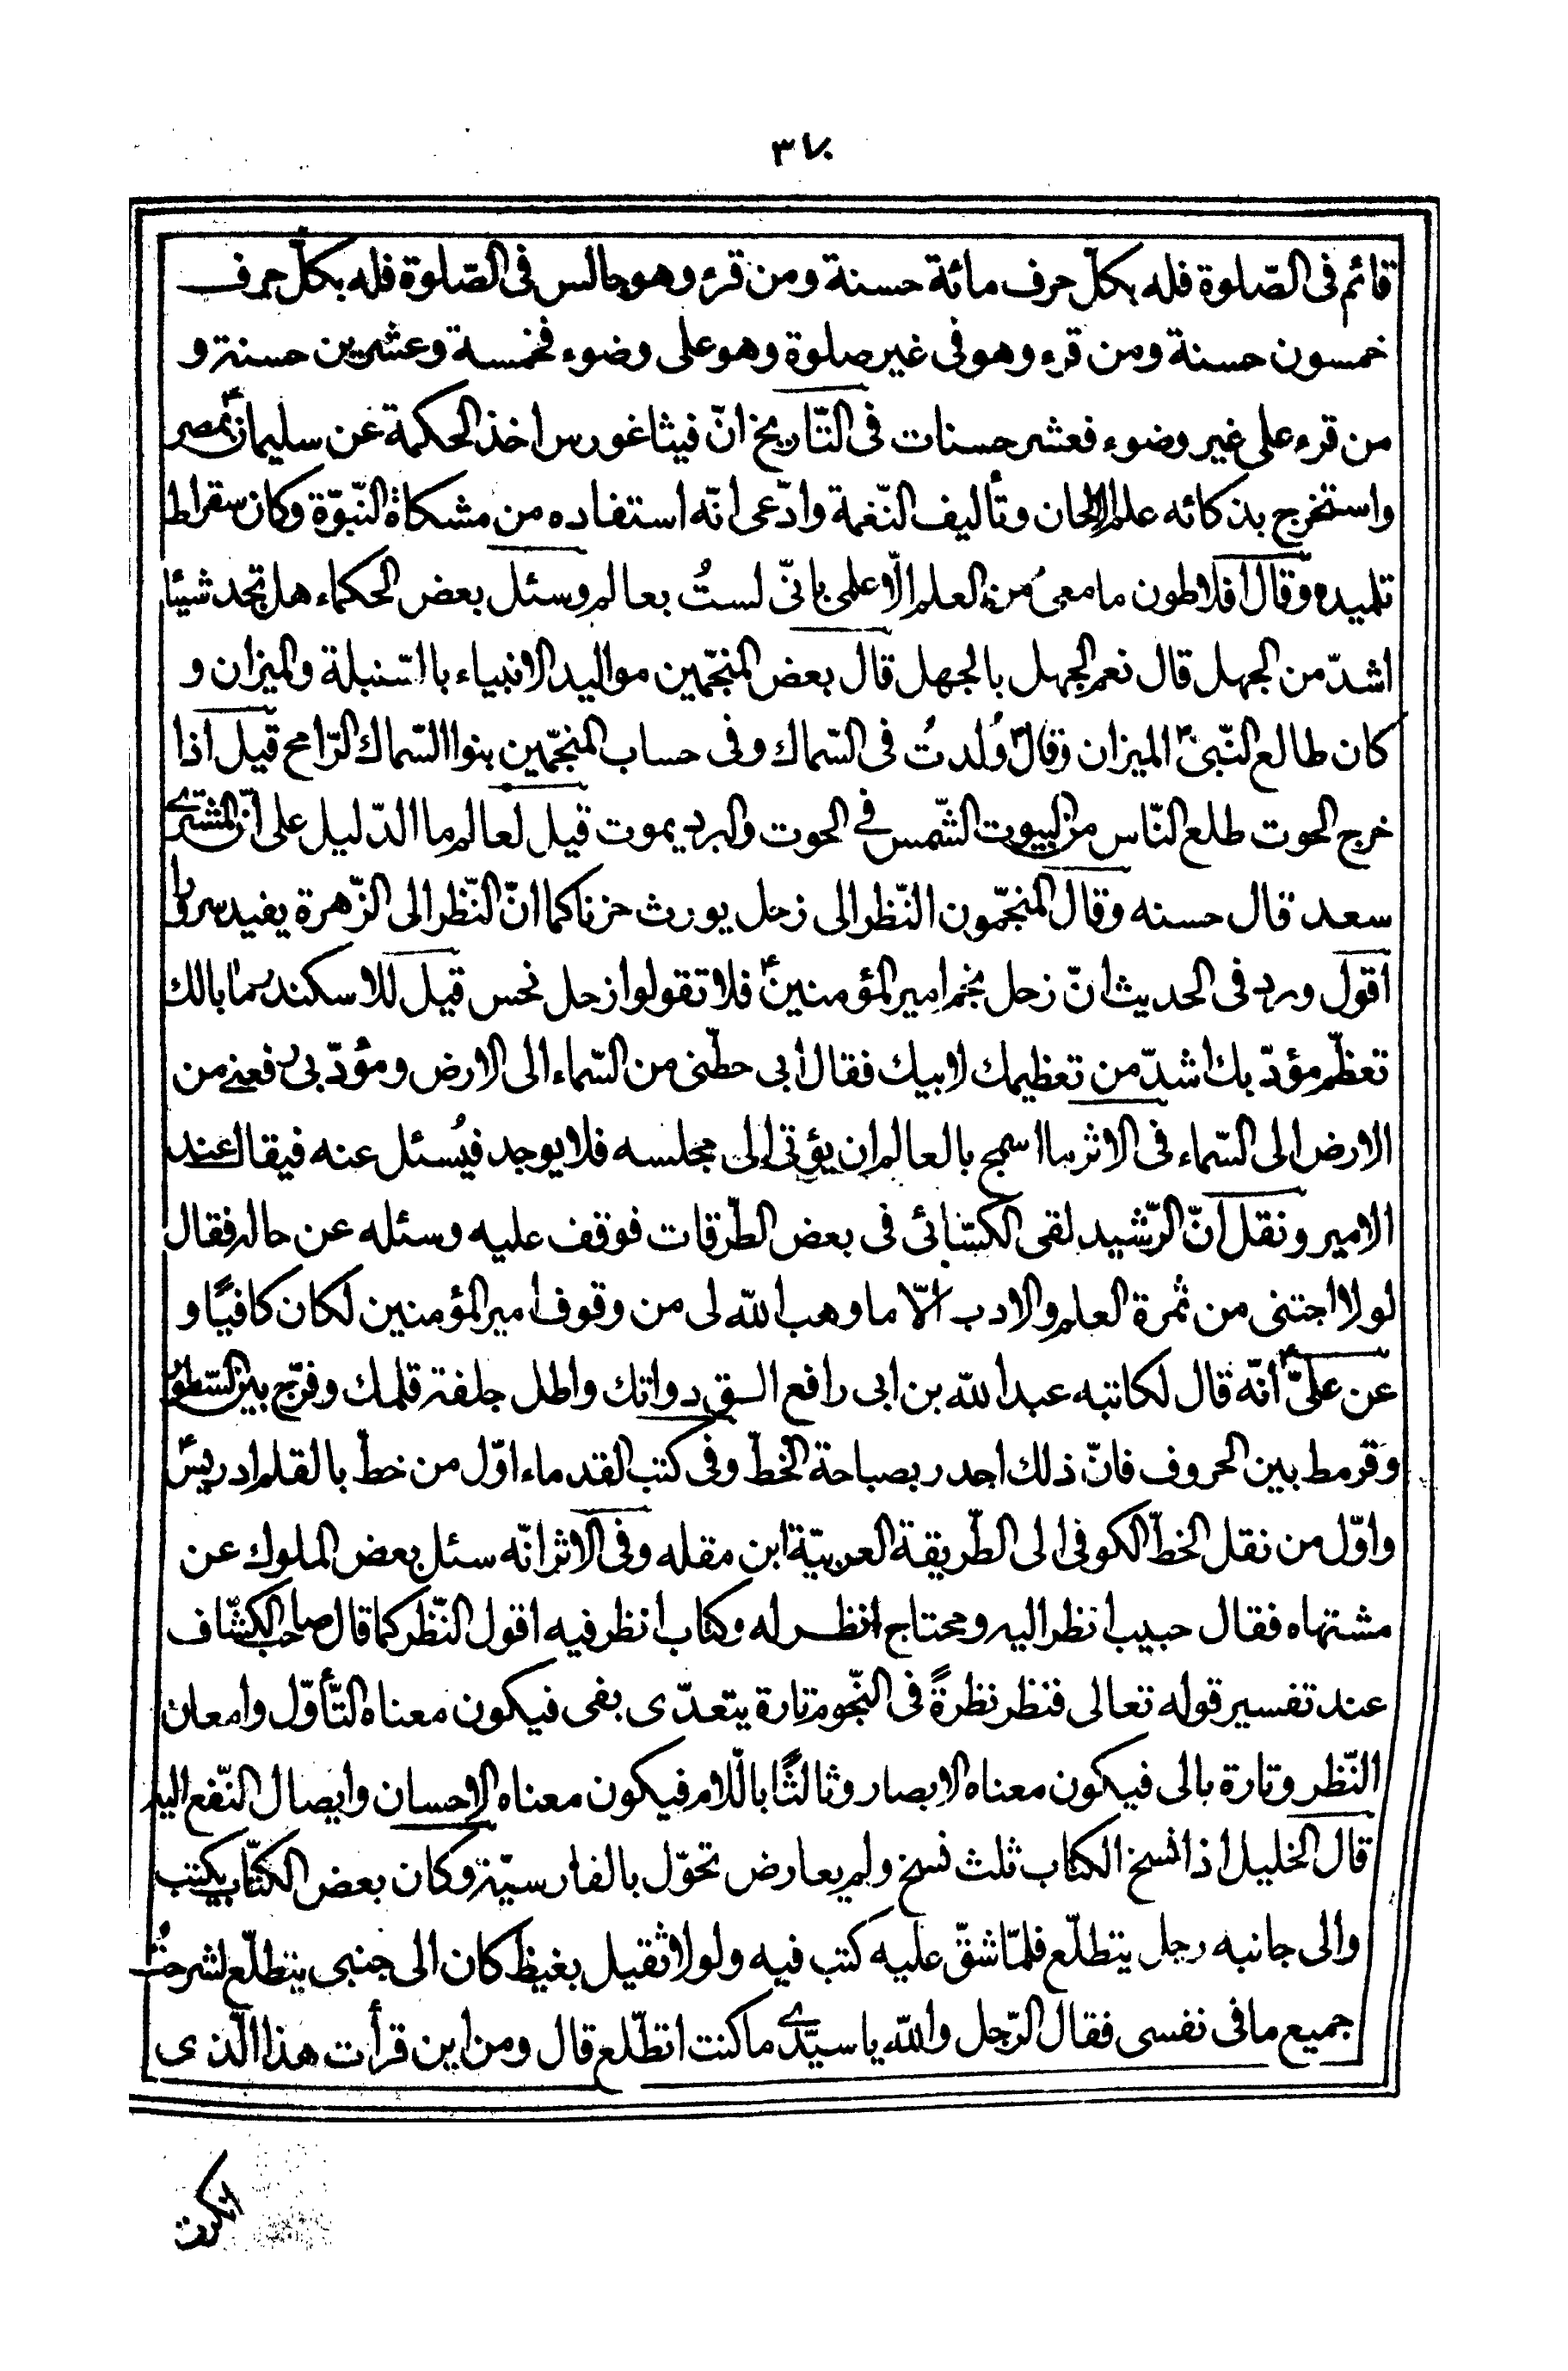 ٣٧٠
قائم فى الصّلوة فله بكلّ حرف مائة حسنة ومن قرء وهو جالس فى الصّلوة فله بكلّ حرف
خمسون حسنة ومن قرء وهو فى غير صلوة وهو على وضوء فخمسة وعشرين حسنة و
من قرء على غير وضوء فعشر حسنات فى التّاريخ انّ فيثاغورس اخذ الحكمة عن سليمانؑ بمصر
واستخرج بذكائه علم الالحان وتأليف النّغمة وادّعى انّه استفاده من مشكاة النّبوّة وكان سقراط
تلميذه وقال افلاطون ما معى من العلم الّا علمى بانّى لستُ بعالم وسئل بعض الحكماء هل تجد شيئا
اشدّ من الجهل قال نعم الجهل بالجهل قال بعض المنجّمين مواليد الانبياء باالسّنبلة والميزان و
كان طالع النّبىّ الميزان وقال وُلدتُ فى السّماك وفى حساب المنجّمين بنوا السّماك الرّامح قيل اذا
خرج الحوت طلع النّاس من البيوت الشّمس فى الحوت والبرد يموت قيل لعالم ما الدّليل على انّ المشترى
سعد قال حسنه وقال المنجّمون النّظر الى زحل يورث حزنا كما انّ النّظر الى الزّهرة يفيد سرورا
اقول ورد فى الحديث انّ زحل نجم امير المؤمنينؑ فلا تقولوا زحل نحس قيل للاسكندر ما بالك
تعظّم مؤدّبك اشدّ من تعظيمك لابيك فقال ابى حطّنى من السّماء الى الارض ومؤدّبى رفعنى من
الارض الى السّماء فى الاثر ما اسمج بالعالم ان يؤتى الى مجلسه فلا يوجد فيُسئل عنه فيقال عند
الامير ونقل انّ الرّشيد لقى الكسّائى فى بعض الطّرقات فوقف عليه وسئله عن حاله فقال
لولا اجتنى من ثمرة العلم والادب الّا ما وهب اللّه لى من وقوف امير المؤمنين لكان كافيًا و
عن علىّؑ انّه قال لكاتبه عبد اللّه بن ابى رافع الق دواتك واطل جلفة قلمك وفرّج بين السّطور
وقرمط بين الحروف فانّ ذلك اجدر بصباحة الخطّ وفى كتب القدماء اوّل من خطّ بالقلم ادريسؑ
واوّل من نقل الخطّ الكوفى الى الطّريقة العربيّة ابن مقله وفى الاثر انّه سئل بعض الملوك عن
مشتهاه فقال حبيب انظر اليه ومحتاج انظر له وكتاب انظر فيه اقول النّظر كما قال صاحب الكشّاف
عند تفسير قوله تعالى فنظر نظرةً فى النّجوم تارة يتعدّى بفى فيكون معناه التّأوّل وامعان
النّظر وتارة بالى فيكون معناه الابصار وثالثًا باللّام فيكون معناه الاحسان وايصال النّفع اليه
قال الخليل اذا نسخ الكتاب ثلث نسخ ولم يعارض تحوّل بالفارسيّة وكان بعض الكتّاب يكتب
والى جانبه رجل يتطلّع فلمّا شقّ عليه كتب فيه ولولا ثقيل بغيظ كان الى جنبى يتطلّع لشرحتُ
جميع ما فى نفسى فقال الرّجل واللّه يا سيّدى ما كنت اتطلّع قال ومن اين قرأت هذا الّذى
انكرت